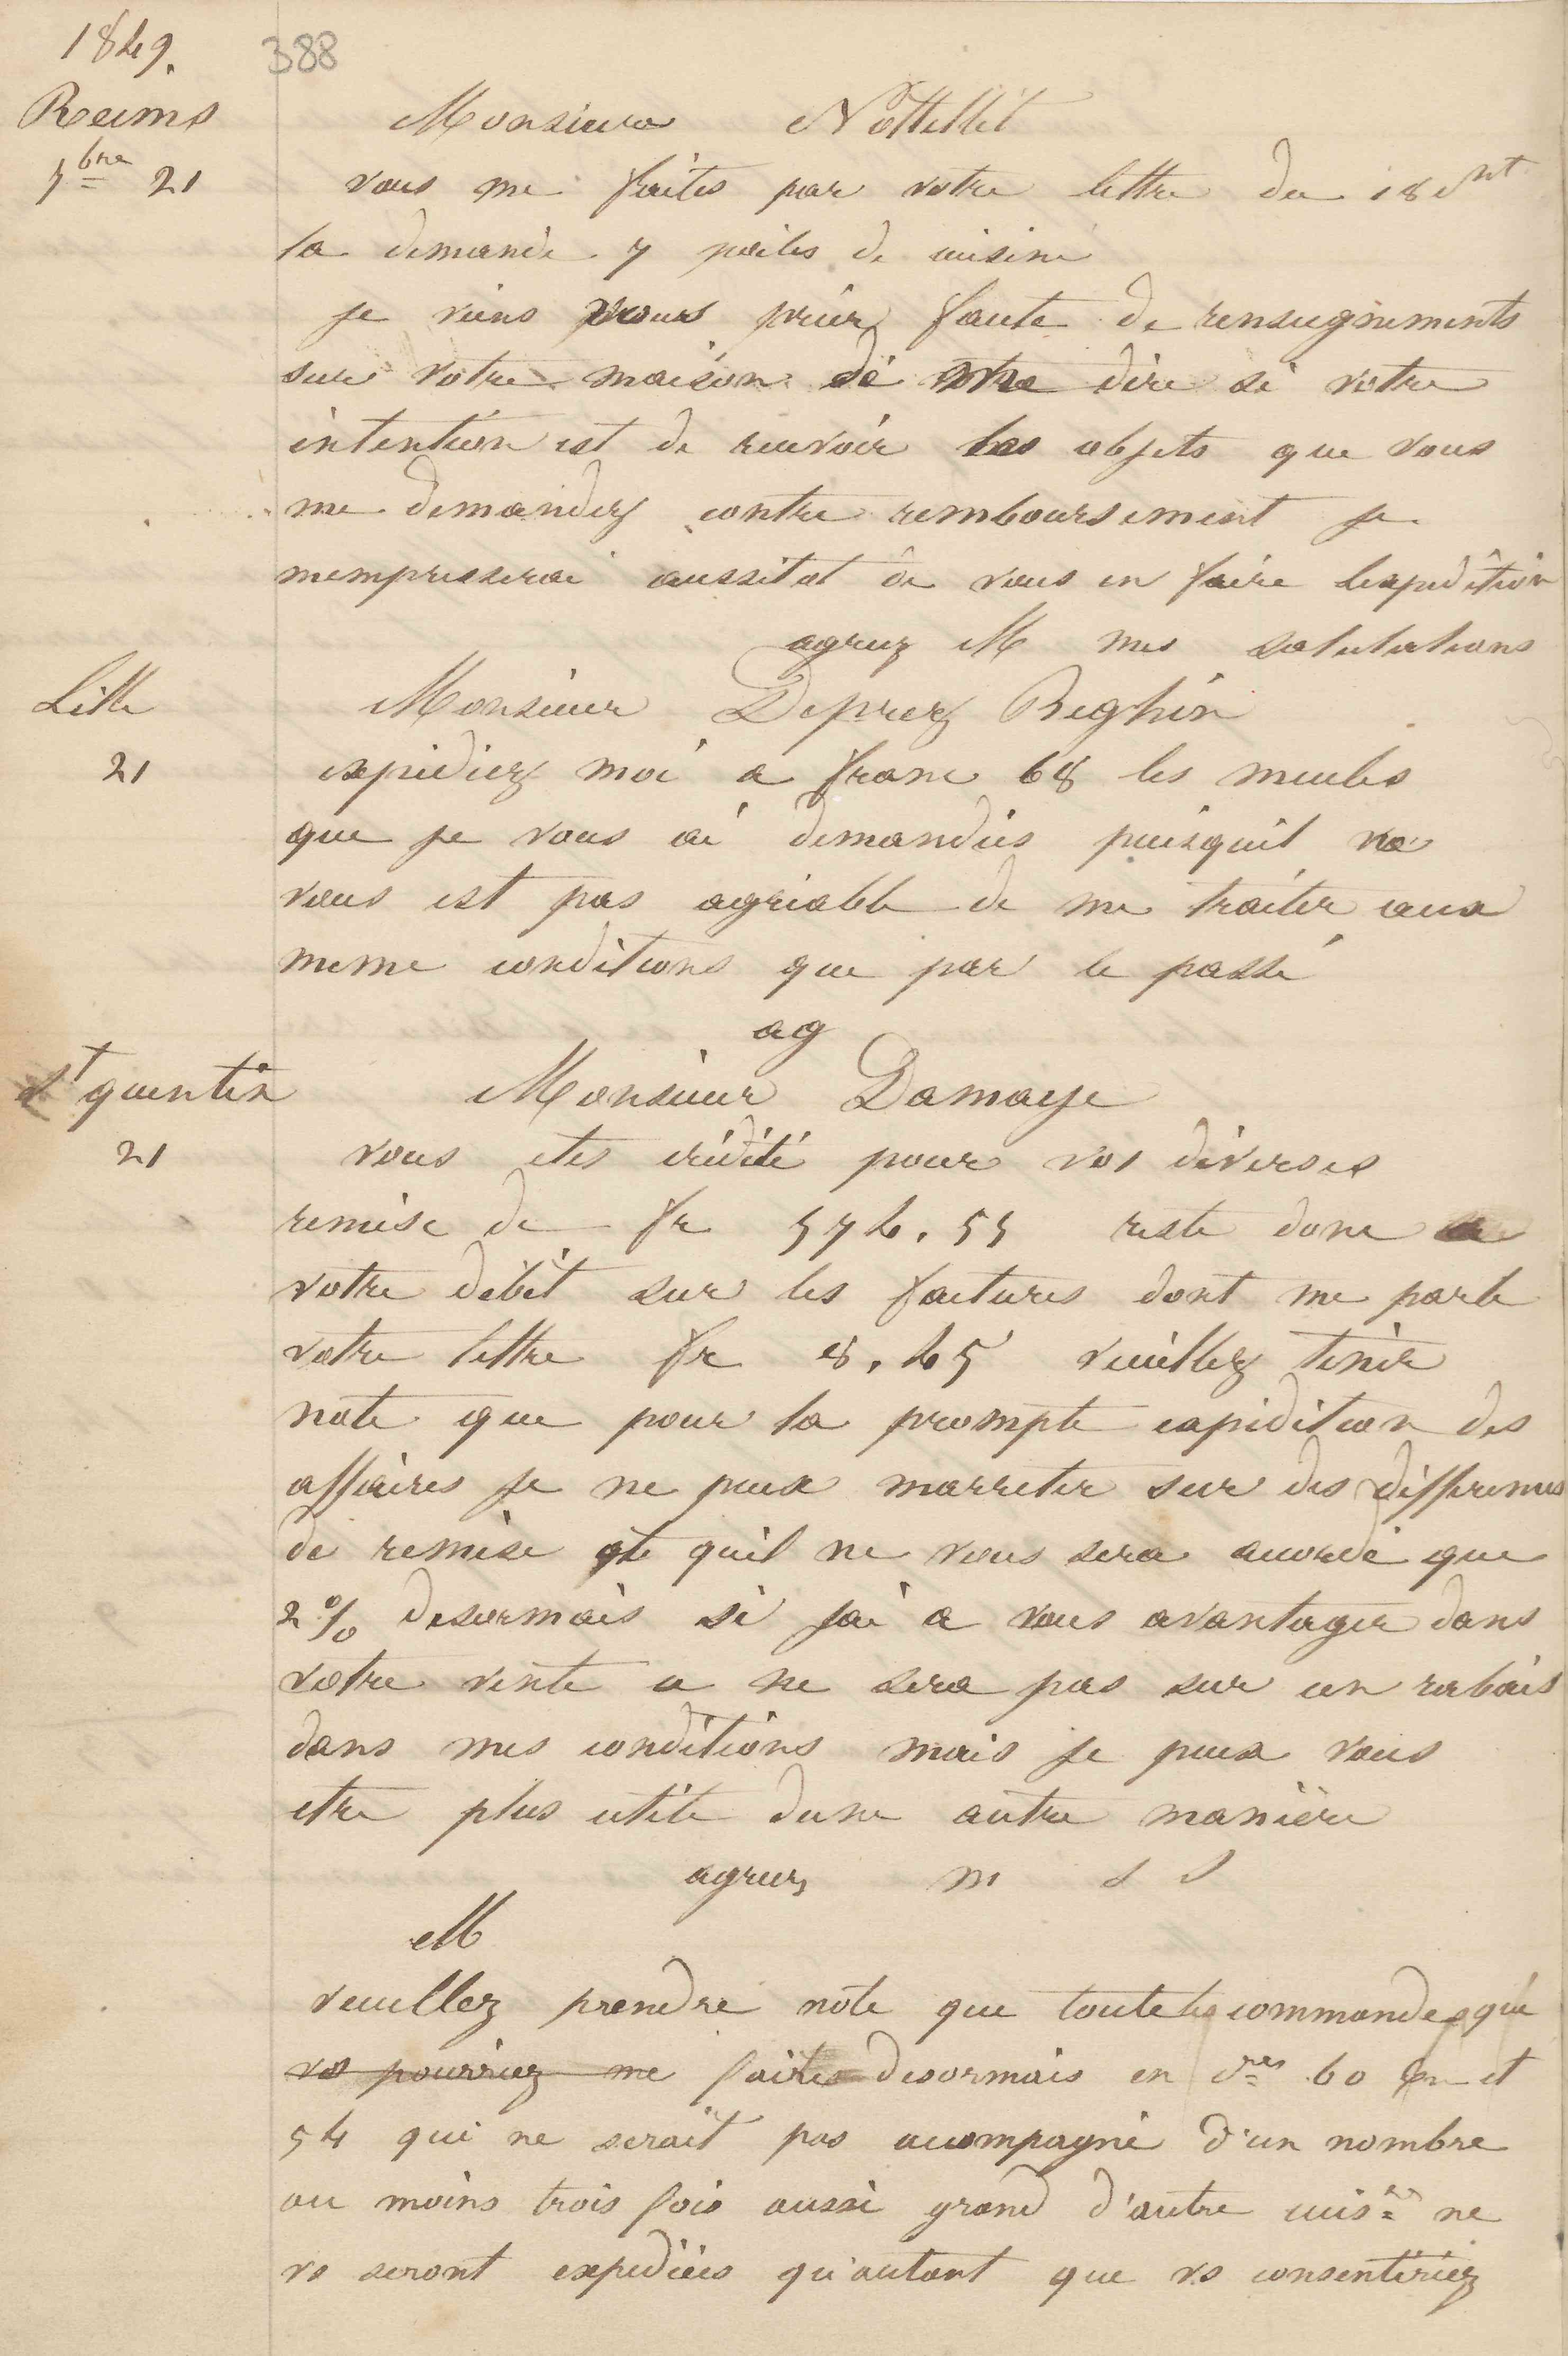 1849.
388
Reims
7bre 21
Monsieur Nottellet
vous me faites par votre lettre du 18 ct
la demande 7 poiles de cuisine
je viens vous prier faute de renseignements
sur votre maison de me dire si votre
intention est de recevoir les objets que vous
me demandez contre remboursement je
mempresserai aussitot de vous en faire lexpedition
agreez M mes salutations
Lille
21
Monsieur Deprez Beghin
expediez moi a franc 68 les meules
que je vous ai demandées puisquil ne
vous est pas agréable de me traiter aux
meme conditions que par le passé
ag
St quentin
21
Monsieur Damaye
vous etes crédité pour vos diverses
remise de fr 574.55 reste donc a
votre débit sur les factures dont me parle
votre lettre fr 8.45 veuillez tenir
note que pour la prompte expedition des
affaires je ne peux marreter sur des differences
de remise et quil ne vous sera accordé que
2% desormais si jai a vous avantager dans
votre vente ce ne sera pas sur un rabais
dans mes conditions mais je peux vous
etre plus utile dune autre manière
agreez m s s
M
veuillez prendre note que toute les commandes que
vs pourriez me faites desormais en 60 et
54 qui ne serait pas accompagné d'un nombre
au moins trois fois aussi grand d'autre cuisres ne
vs seront expediées qu'autant que vs consentiriez